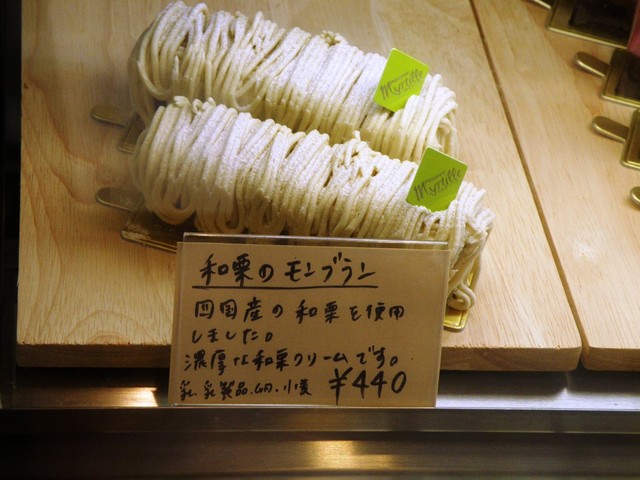 Myrtille
Myrtille
和栗のモンブラン
四国産の和栗を使用
しました。
濃厚な和栗クリームです。
乳、乳製品、卵、小麦 ¥440